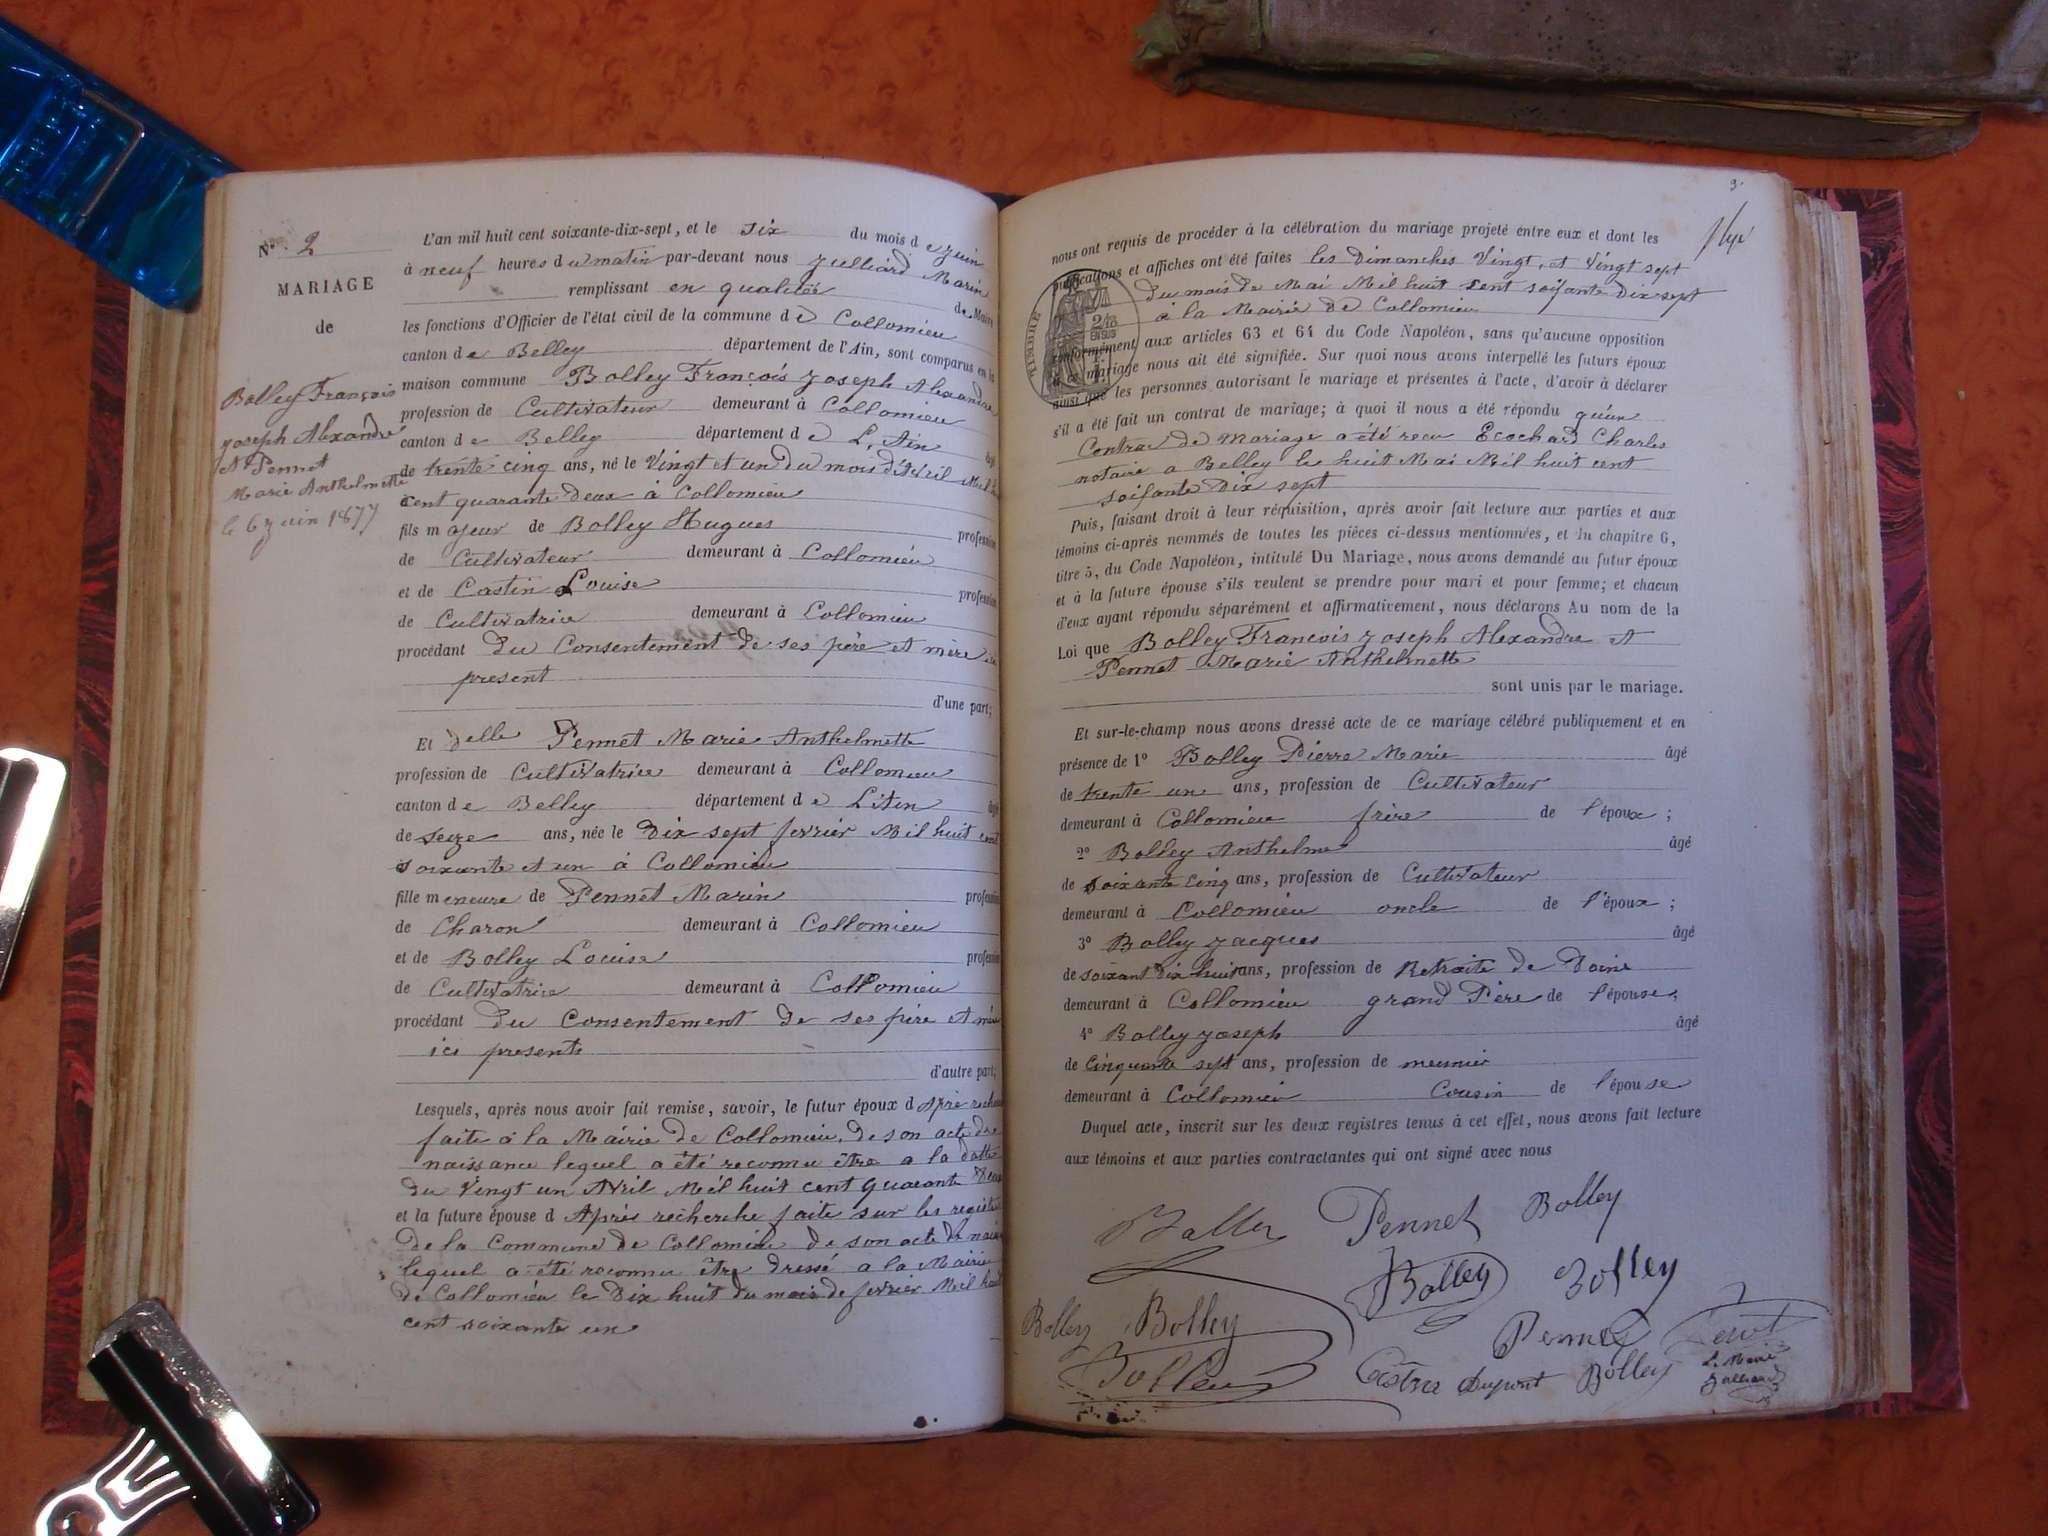 N° 2
MARIAGE
de
Bolley François
Joseph Alexandre
et Pennet
Marie Anthelmette
le 6 juin 1877
L'an mil huit cent soixante-dix-sept, et le six du mois de juin
à neuf heures du matin par-devant nous Julliard Marin
remplissant en qualitée de Maire
les fonctions d'Officier de l'état civil de la commune de Collomieu
canton de Belley département de l'Ain, sont comparus en la
maison commune Bolley François Joseph Alexandre
profession de Cultivateur demeurant à Collomieu
canton de Belley département de L'Ain âgé
de trente cinq ans, né le Vingt et un du mois d'Avril Mil
cent quarante deux à Collomieu
fils majeur de Bolley Hugues profession
de Cultivateur demeurant à Collomieu
et de Castin Louise profession
de Cultivatrice demeurant à Collomieu
procédant du Consentement de ses père et mère
present
d'une part;
Et delle Pennet Marie Anthelmette
profession de Cultivatrice demeurant à Collomieu
canton de Belley département de L'Ain âgé
de seize ans, née le Dix sept fevrier Mil huit cent
soixante et un à Collomieu
fille meneure de Pennet Marin profession
de Charon demeurant à Collomieu
et de Bolley Louise profession
de Cultivatrice demeurant à Collomieu
procédant du Consentement de ses père et mère
ici presents
d'autre part;
Lesquels, après nous avoir fait remise, savoir, le futur époux d Aprè recherche
faite à la Mairie de Collomieu, de son acte de
naissance lequel a été reconnu être a la datte
du Vingt un Avril Mil huit cent quarante Deux
et la future épouse d Après recherche faite sur les registres
de la Commune de Collomieu de son acte de
lequel a été reconnu être dressé a la Mairie
de Collomieu le Dix huit du mois de fevrier Mil huit
cent soixante un
3.
nous ont requis de procéder à la célébration du mariage projeté entre eux et dont les
publications et affiches ont été faites les Dimanches Vingt, et Vingt sept
du mois de Mai Mil huit cent soixante Dix sept
a la Mairie de Collomieu
TIMBRE
conformément aux articles 63 et 64 du Code Napoléon, sans qu'aucune opposition
à ce mariage nous ait été signifiée. Sur quoi nous avons interpellé les futurs époux
ainsi que les personnes autorisant le mariage et présentes à l'acte, d'avoir à déclarer
s'il a été fait un contrat de mariage; à quoi il nous a été répondu qu'un
Contrat de mariage a été recu Ecochard Charles
notaire a Belley le huit Mai Mil huit cent
soixante Dix sept
Puis, faisant droit à leur réquisition, après avoir fait lecture aux parties et aux
témoins ci-après nommés de toutes les pièces ci-dessus mentionnées, et du chapitre 6,
titre 5, du Code Napoléon, intitulé Du Mariage, nous avons demandé au futur époux
et à la future épouse s'ils veulent se prendre pour mari et pour femme; et chacun
d'eux ayant répondu séparément et affirmativement, nous déclarons Au nom de la
Loi que Bolley François Joseph Alexandre et
Pennet Marie Anthelmette
sont unis par le mariage.
Et sur-le-champ nous avons dressé acte de ce mariage célébré publiquement et en
présence de 1° Bolley Pierre Marie âgé
de trente un ans, profession de Cultivateur
demeurant à Collomieu frère de l'époux;
2° Bolley Anthelme âgé
de soixante cinq ans, profession de Cultivateur
demeurant à Collomieu oncle de l'époux;
3° Bolley Jacques âgé
de soixant dix huit ans, profession de Retraite de
demeurant à Collomieu grand Père de l'épouse;
4° Bolley Joseph âgé
de Cinquante sept ans, profession de meunier
demeurant à Collomieu Cousin de l'épouse
Duquel acte, inscrit sur les deux registres tenus à cet effet, nous avons fait lecture
aux témoins et aux parties contractantes qui ont signé avec nous
Bolley Pennet Bolley
Bolley Bolley
Bolley Bolley Pennet
Bolley Dupont Bolley
Le Maire
Julliard